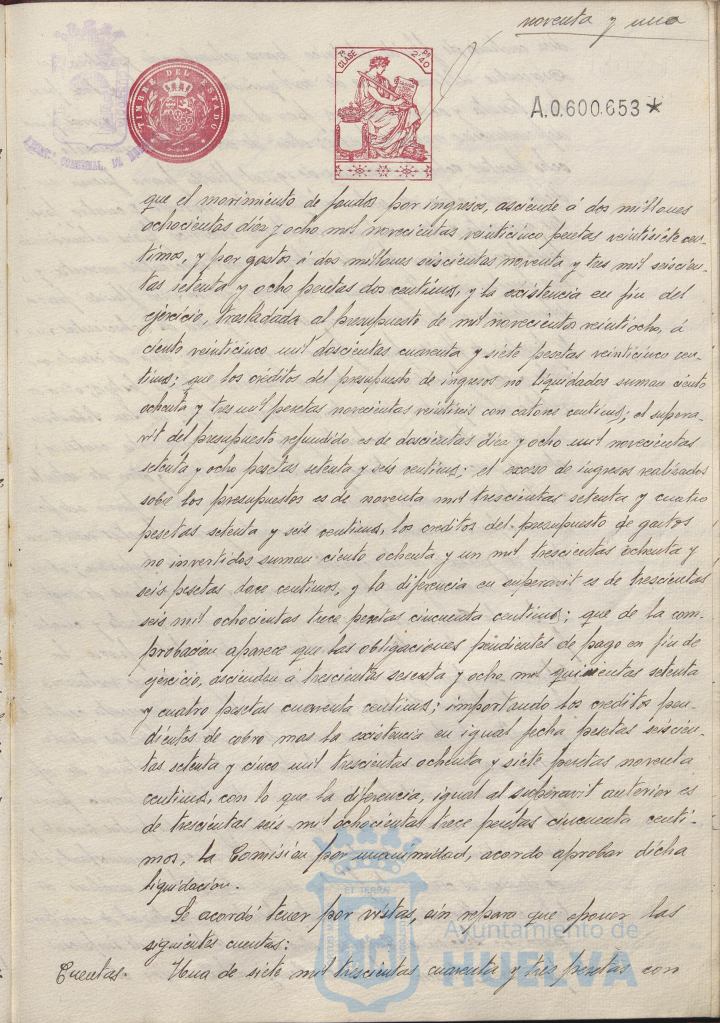 noventa y una
TIMBRE DEL ESTADO
7ª CLASE
Ps 2'40
A.0.600.653 ★
que el movimiento de fondos por ingresos, asciende á dos millones
ochocientas diez y ocho mil novecientas veinticinco pesetas veintisiete cen-
timos, y por gastos á dos millones seiscientas noventa y tres mil seiscien-
tas setenta y ocho pesetas dos centimos, y la existencia en fin del
ejercicio, trasladada al presupuesto de mil novecientos veintiocho, á
ciento veinticinco mil doscientas cuarenta y siete pesetas veinticinco cen-
timos; que los créditos del presupuesto de ingresos no liquidados suman ciento
ochenta y tres mil pesetas novecientas veintiseis con catorce centimos; el supera-
vit del presupuesto refundido es de doscientas diez y ocho mil novecientas
setenta y ocho pesetas setenta y seis centimos; el exceso de ingresos realizados
sobre los presupuestos es de noventa mil trescientas setenta y cuatro
pesetas setenta y seis centimos, los creditos del presupuesto de gastos
no invertidos suman ciento ochenta y un mil trescientas ochenta y
seis pesetas doce centimos, y la diferencia en superavit es de trescientas
seis mil ochocientas trece pesetas cincuenta centimos; que de la com-
probación aparece que las obligaciones pendientes de pago en fin de
ejercicio, ascienden á trescientas sesenta y ocho mil quinientas setenta
y cuatro pesetas cuarenta centimos; importando los creditos pen-
dientes de cobro mas la existencia en igual fecha pesetas seiscien-
tas setenta y cinco mil trescientas ochenta y siete pesetas noventa
centimos, con lo que la diferencia, igual al superavit anterior es
de trescientas seis mil ochocientas trece pesetas cincuenta centi-
mos, la Comisión por unanimidad, acordo aprobar dicha
liquidación.
Se acordó tener por vistas, sin reparo que oponer las
siguientes cuentas:
Cuentas. Una de siete mil trescientas cuarenta y tres pesetas con
Ayuntamiento de
HUELVA